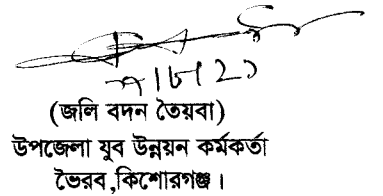 (জলি বদন তৈয়বা)
উপজেলা যুব উন্নয়ন কর্মকর্তা
ভৈরব,কিশোরগঞ্জ।